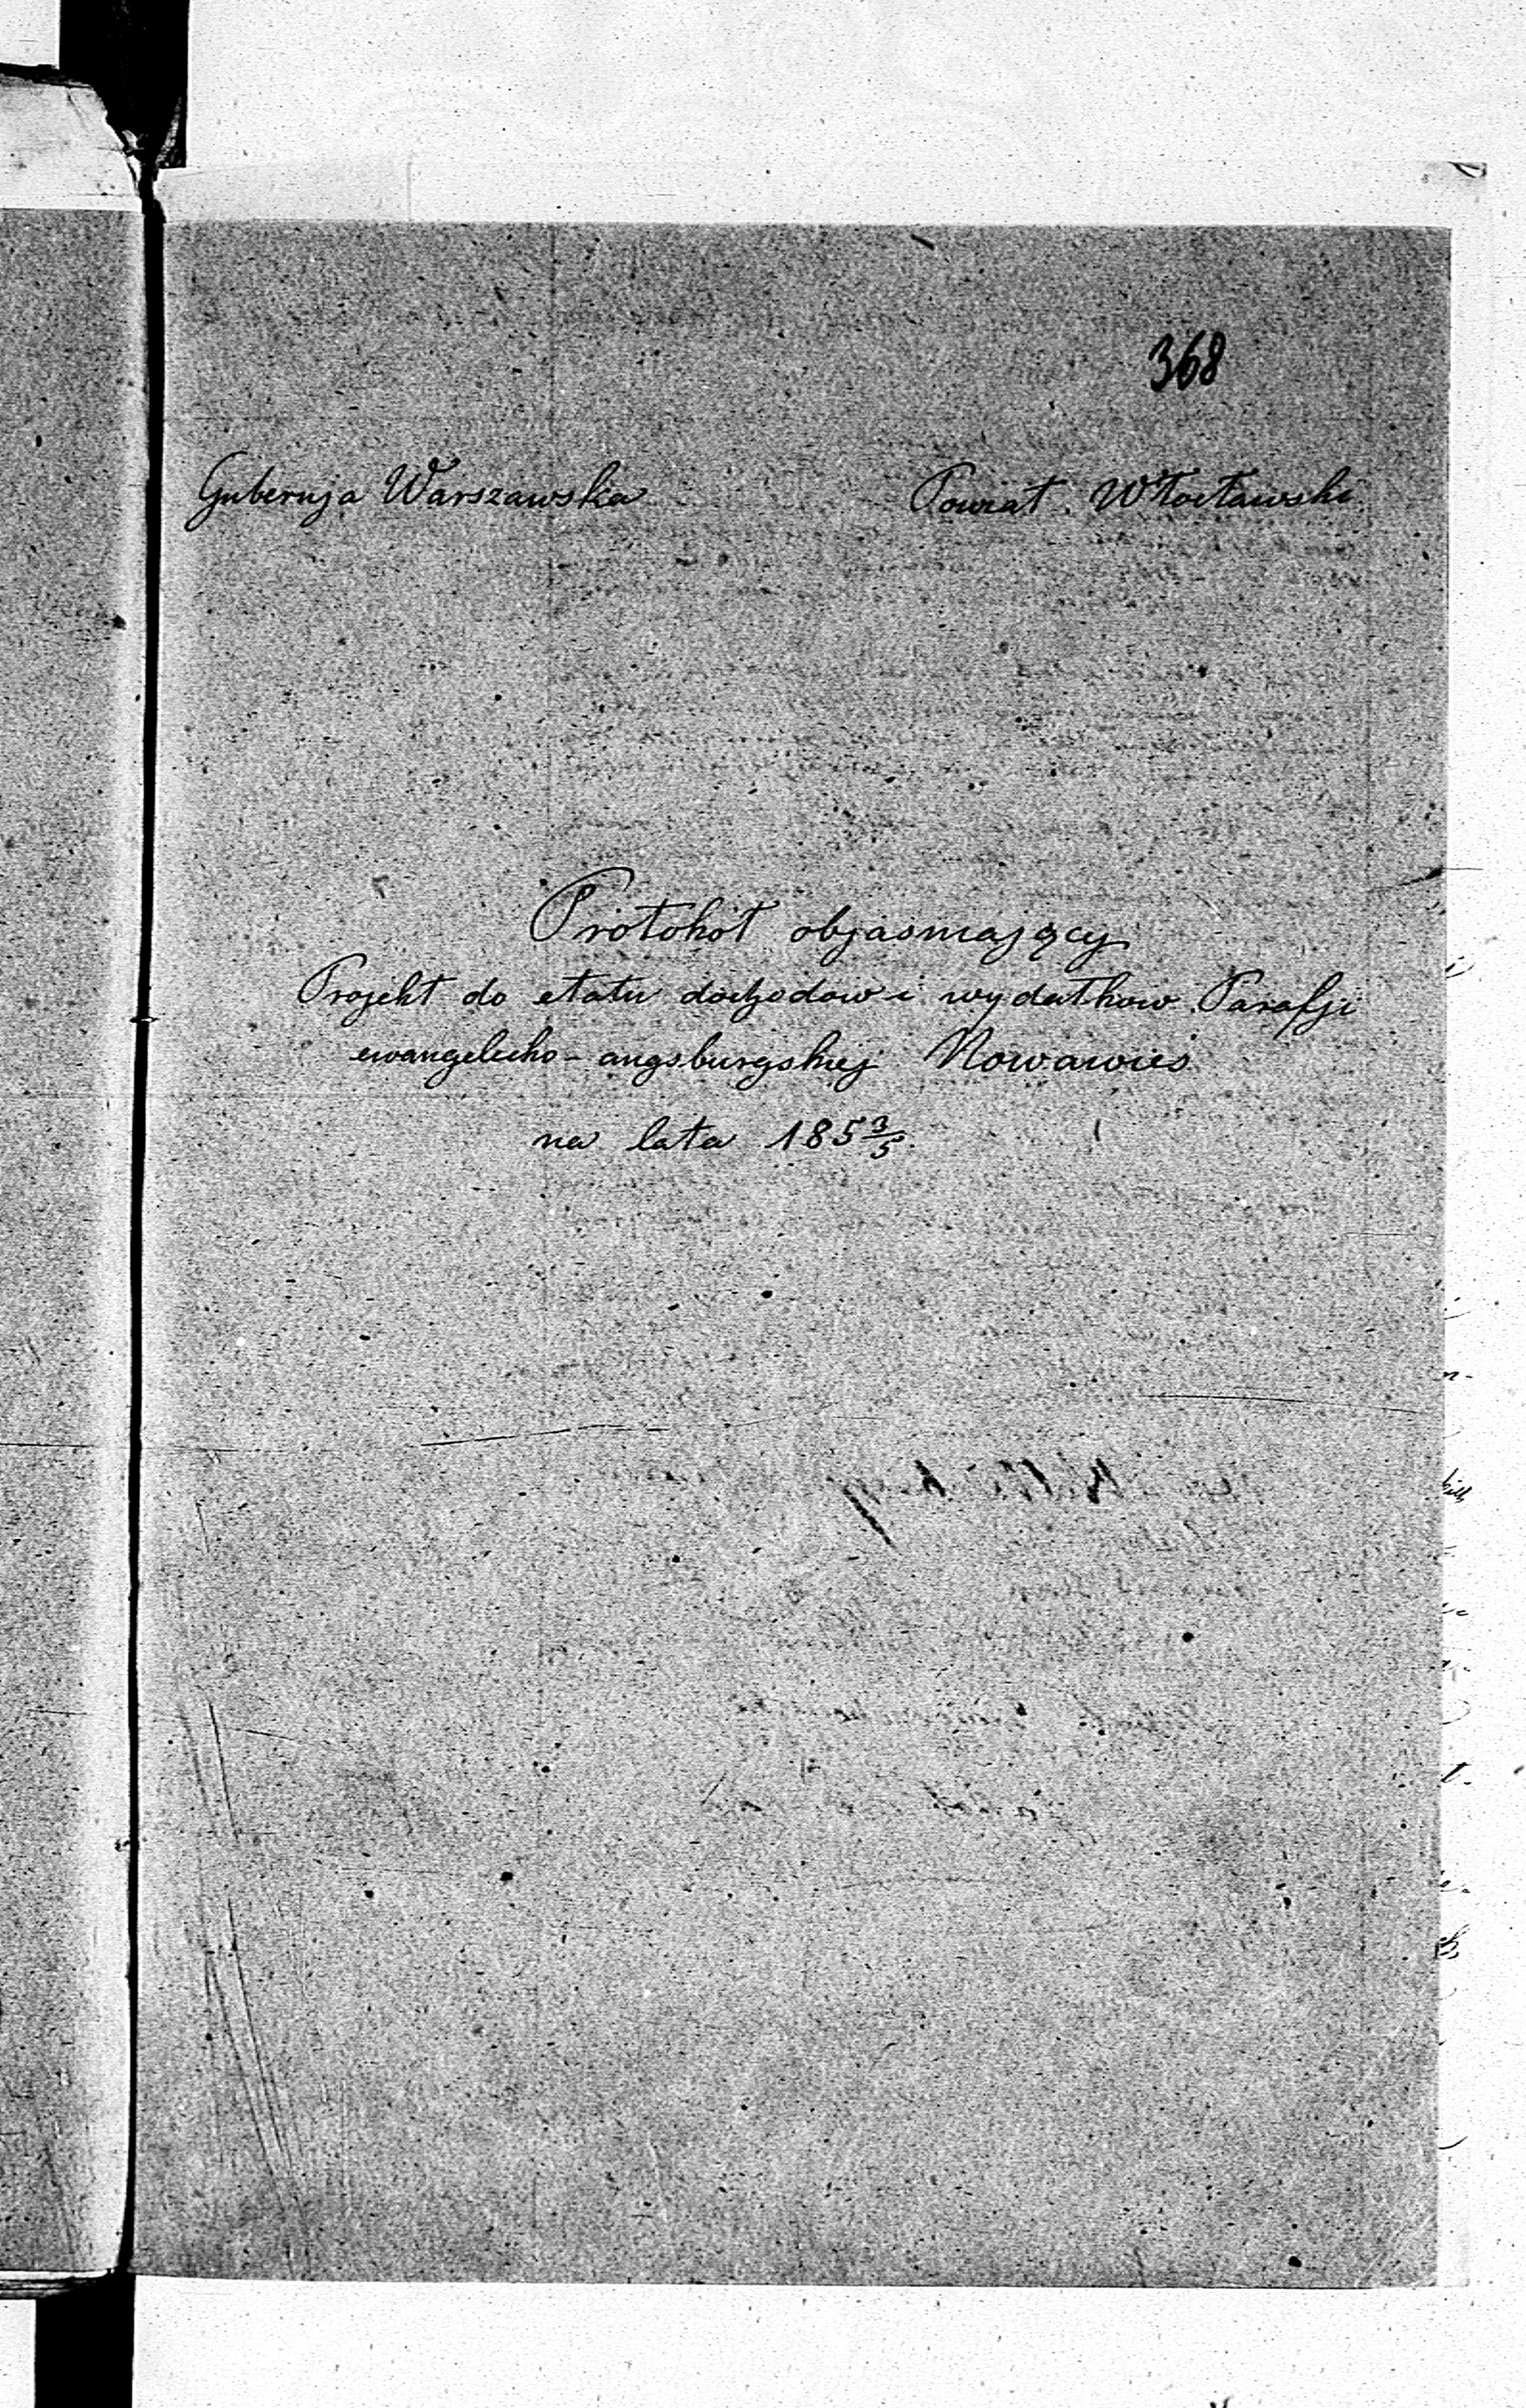 368
Gubernja Warszawska Powiat Włocławski
Protokół objaśniający
Projekt do etatu dochodów i wydatków Parafji
ewangelicko-augsburgskiej Nowawieś
na lata 185 3/5.